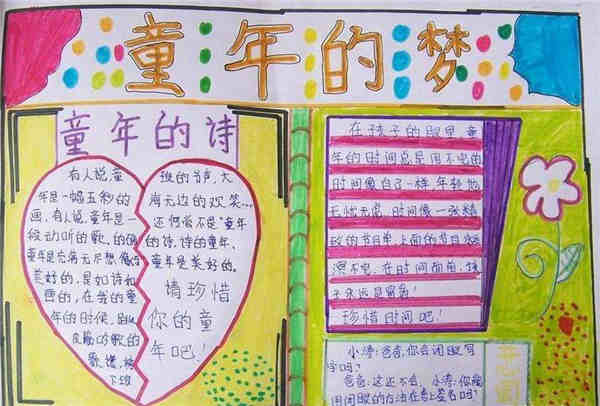 童年的梦
童年的诗
有人说,童
年是一幅五彩的
画,有人说,童年是一
般动听的歌,的确
童年是充满无尽想像
美好的,是如诗如
画的,在我的童
年的时候,
歌谣,
班的节,大
海无边的欢笑…
还何尝不是童年
的诗,诗的童年,
童年是美好的。
请珍惜
你的童
年吧!
在孩子的眼里,童
年的时间总是用不完的
时间像白了一样,年轻的
无忧无虑,时间像一张精
致的节目单,上面的节目
演不完,在时间面前,孩
子永远是富翁!
珍惜时间吧!
小涛:爸爸,你会闭眼写
字吗?
爸爸:这还不会,小涛:你能
用闭眼的方法在卷上签名吗?
开心